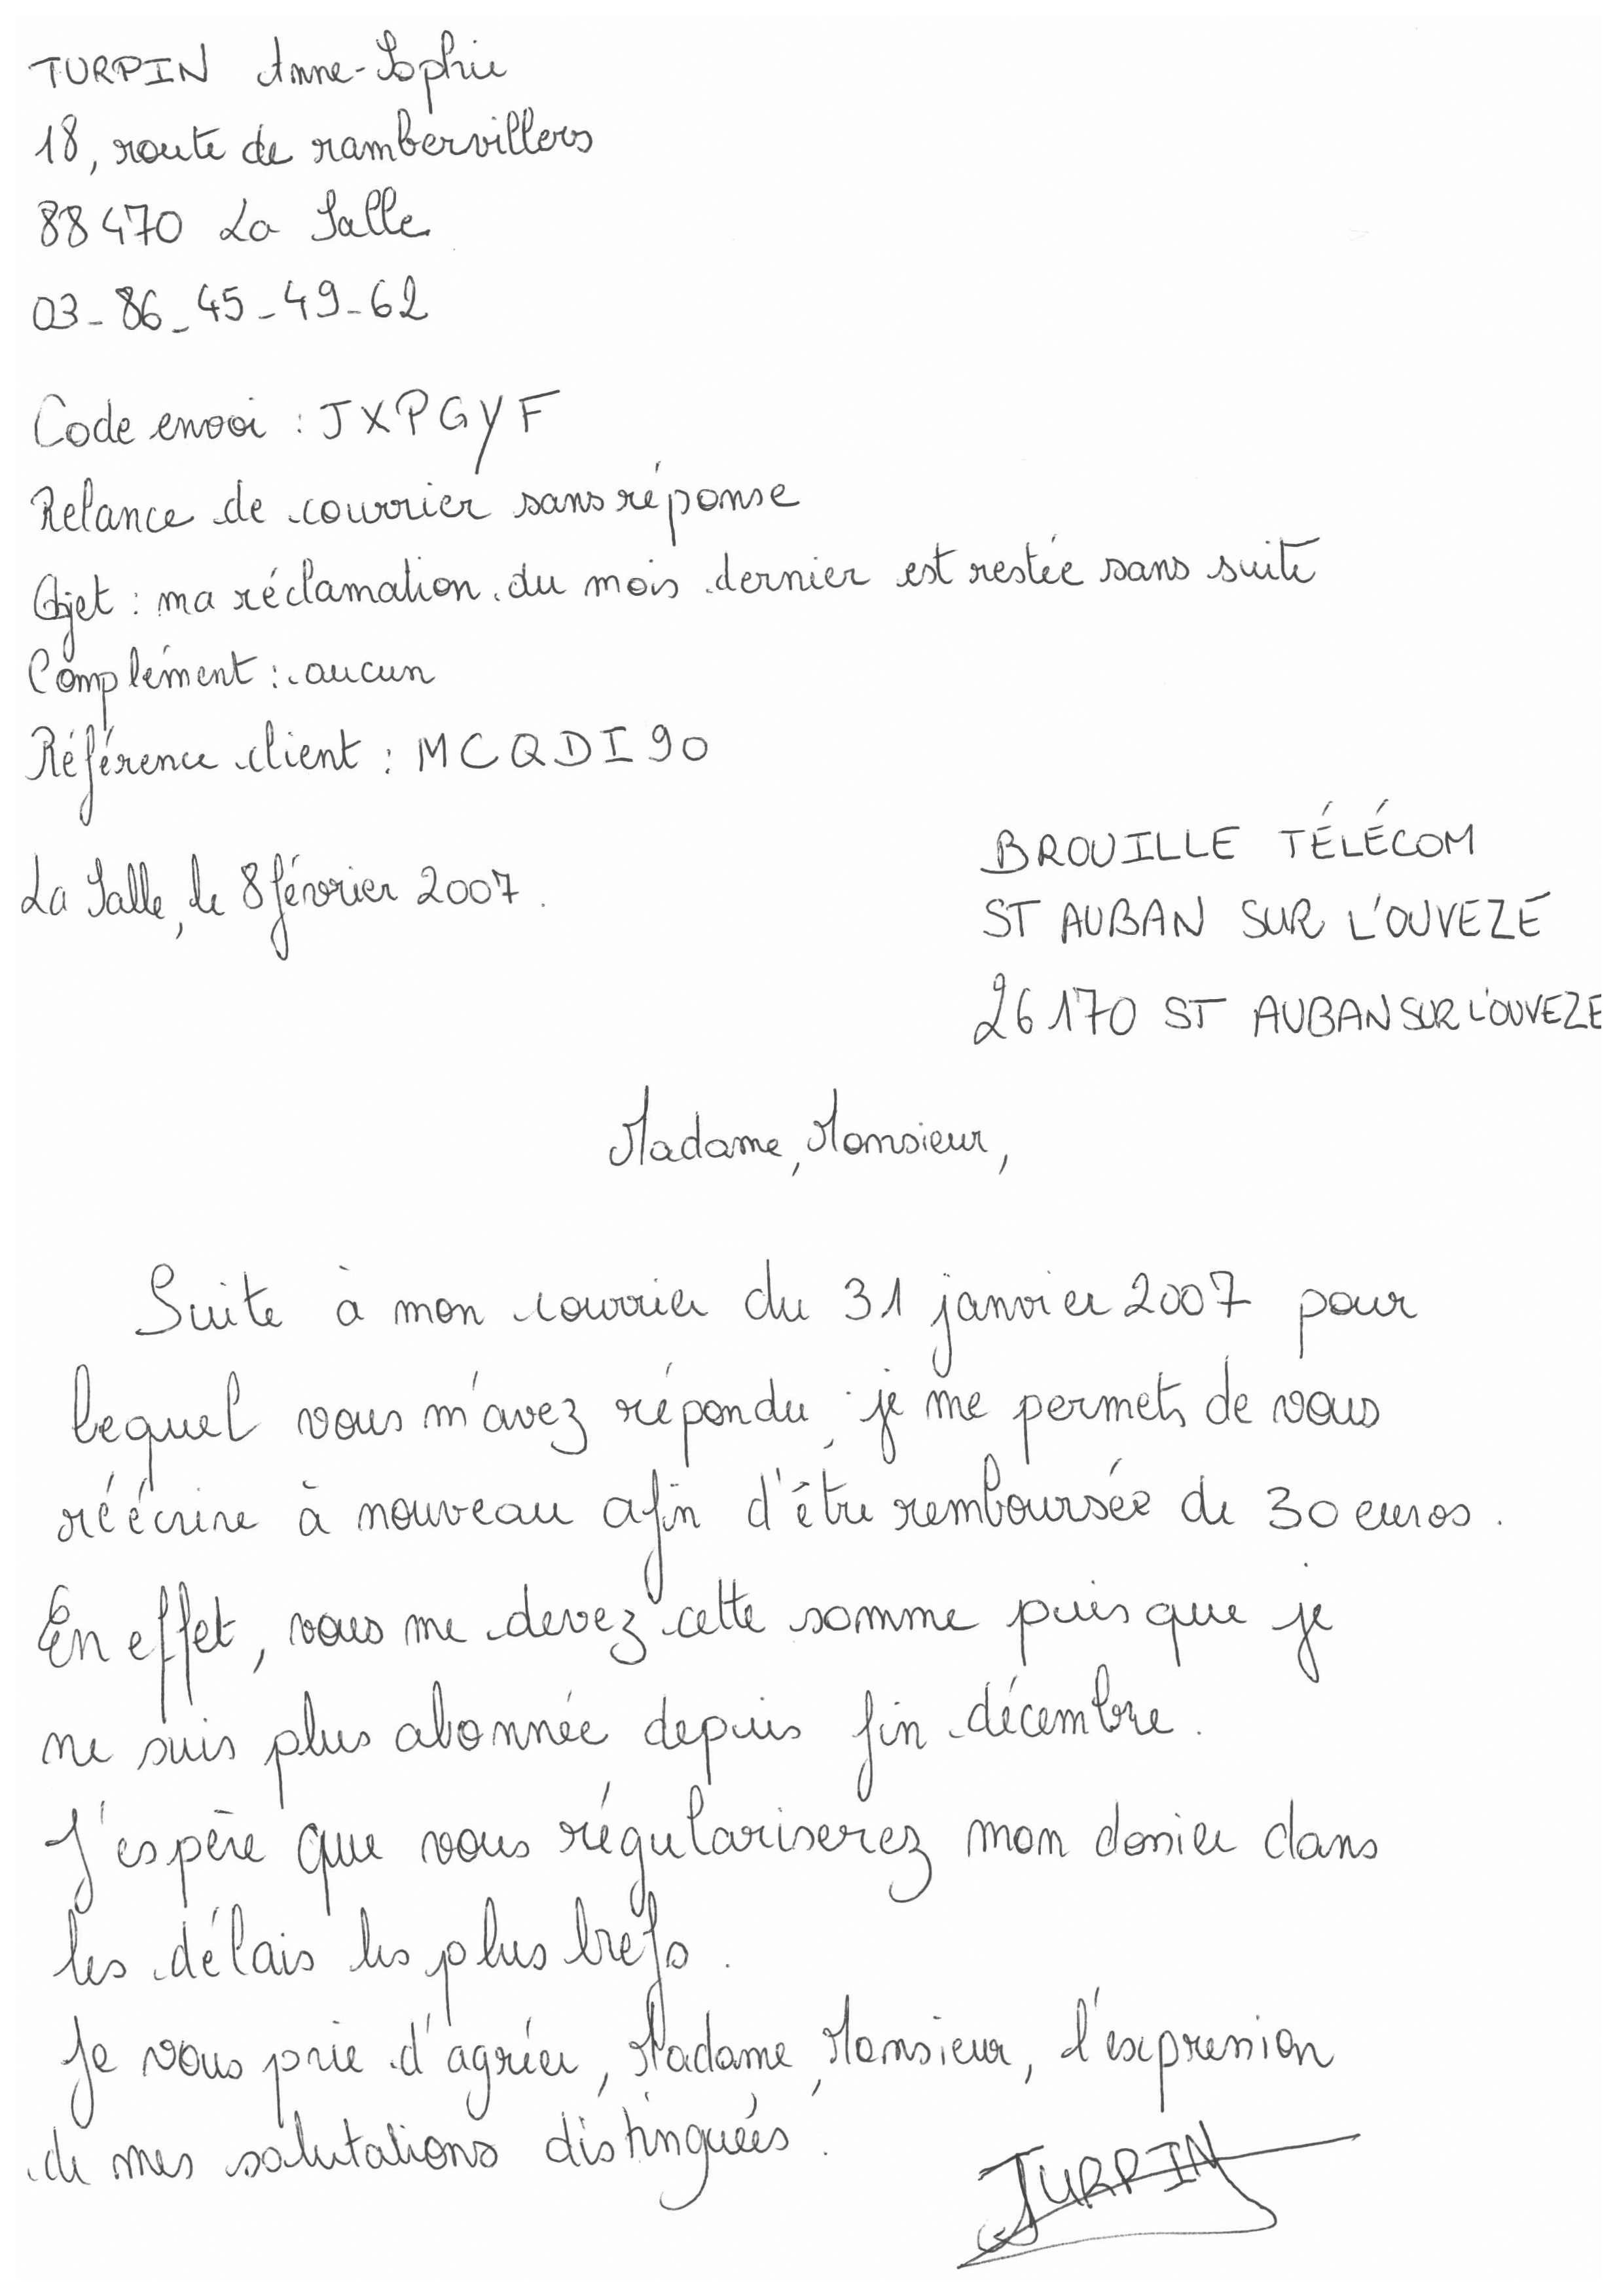 TURPIN Anne-Sophie
18, route de rambervillers
88470 La Salle
03-86-45-49-62
Code envoi : JXPGYF
Relance de courrier sans réponse
Objet : ma réclamation du mois dernier est restée sans suite
Complément : aucun
Référence client : MCQDI90
BROUILLE TÉLÉCOM
La Salle, le 8 février 2007.
ST AUBAN SUR L'OUVEZE
26170 ST AUBAN SUR L'OUVEZE
Madame, Monsieur,
Suite à mon courrier du 31 janvier 2007 pour
lequel vous m'avez répondu, je me permets de vous
réécrire à nouveau afin d'être remboursée de 30 euros.
En effet, vous me devez cette somme puisque je
ne suis plus abonnée depuis fin décembre.
J'espère que vous régulariserez mon dossier dans
les délais les plus brefs.
Je vous prie d'agréer, Madame, Monsieur, l'expression
de mes salutations distinguées.
TURPIN